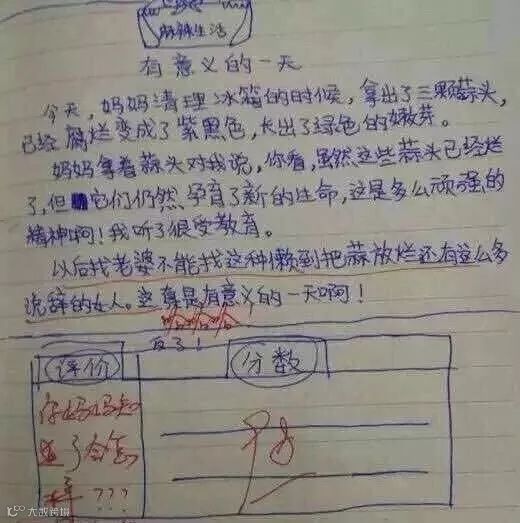 麻辣生活
有意义的一天
今天，妈妈清理冰箱的时候，拿出了三颗蒜头，
已经腐烂变成了紫黑色，长出了绿色的嫩芽。
妈妈拿着蒜头对我说，你看，虽然这些蒜头已经烂
了，但它们仍然孕育了新的生命，这是多么顽强的
精神啊！我听了很受教育。
以后找老婆不能找这种懒到把蒜放烂还有这么多
说辞的女人。这真是有意义的一天啊！
哈哈哈
反了！
评价
分数
你妈妈知
道了会怎
样???
大叔跨境